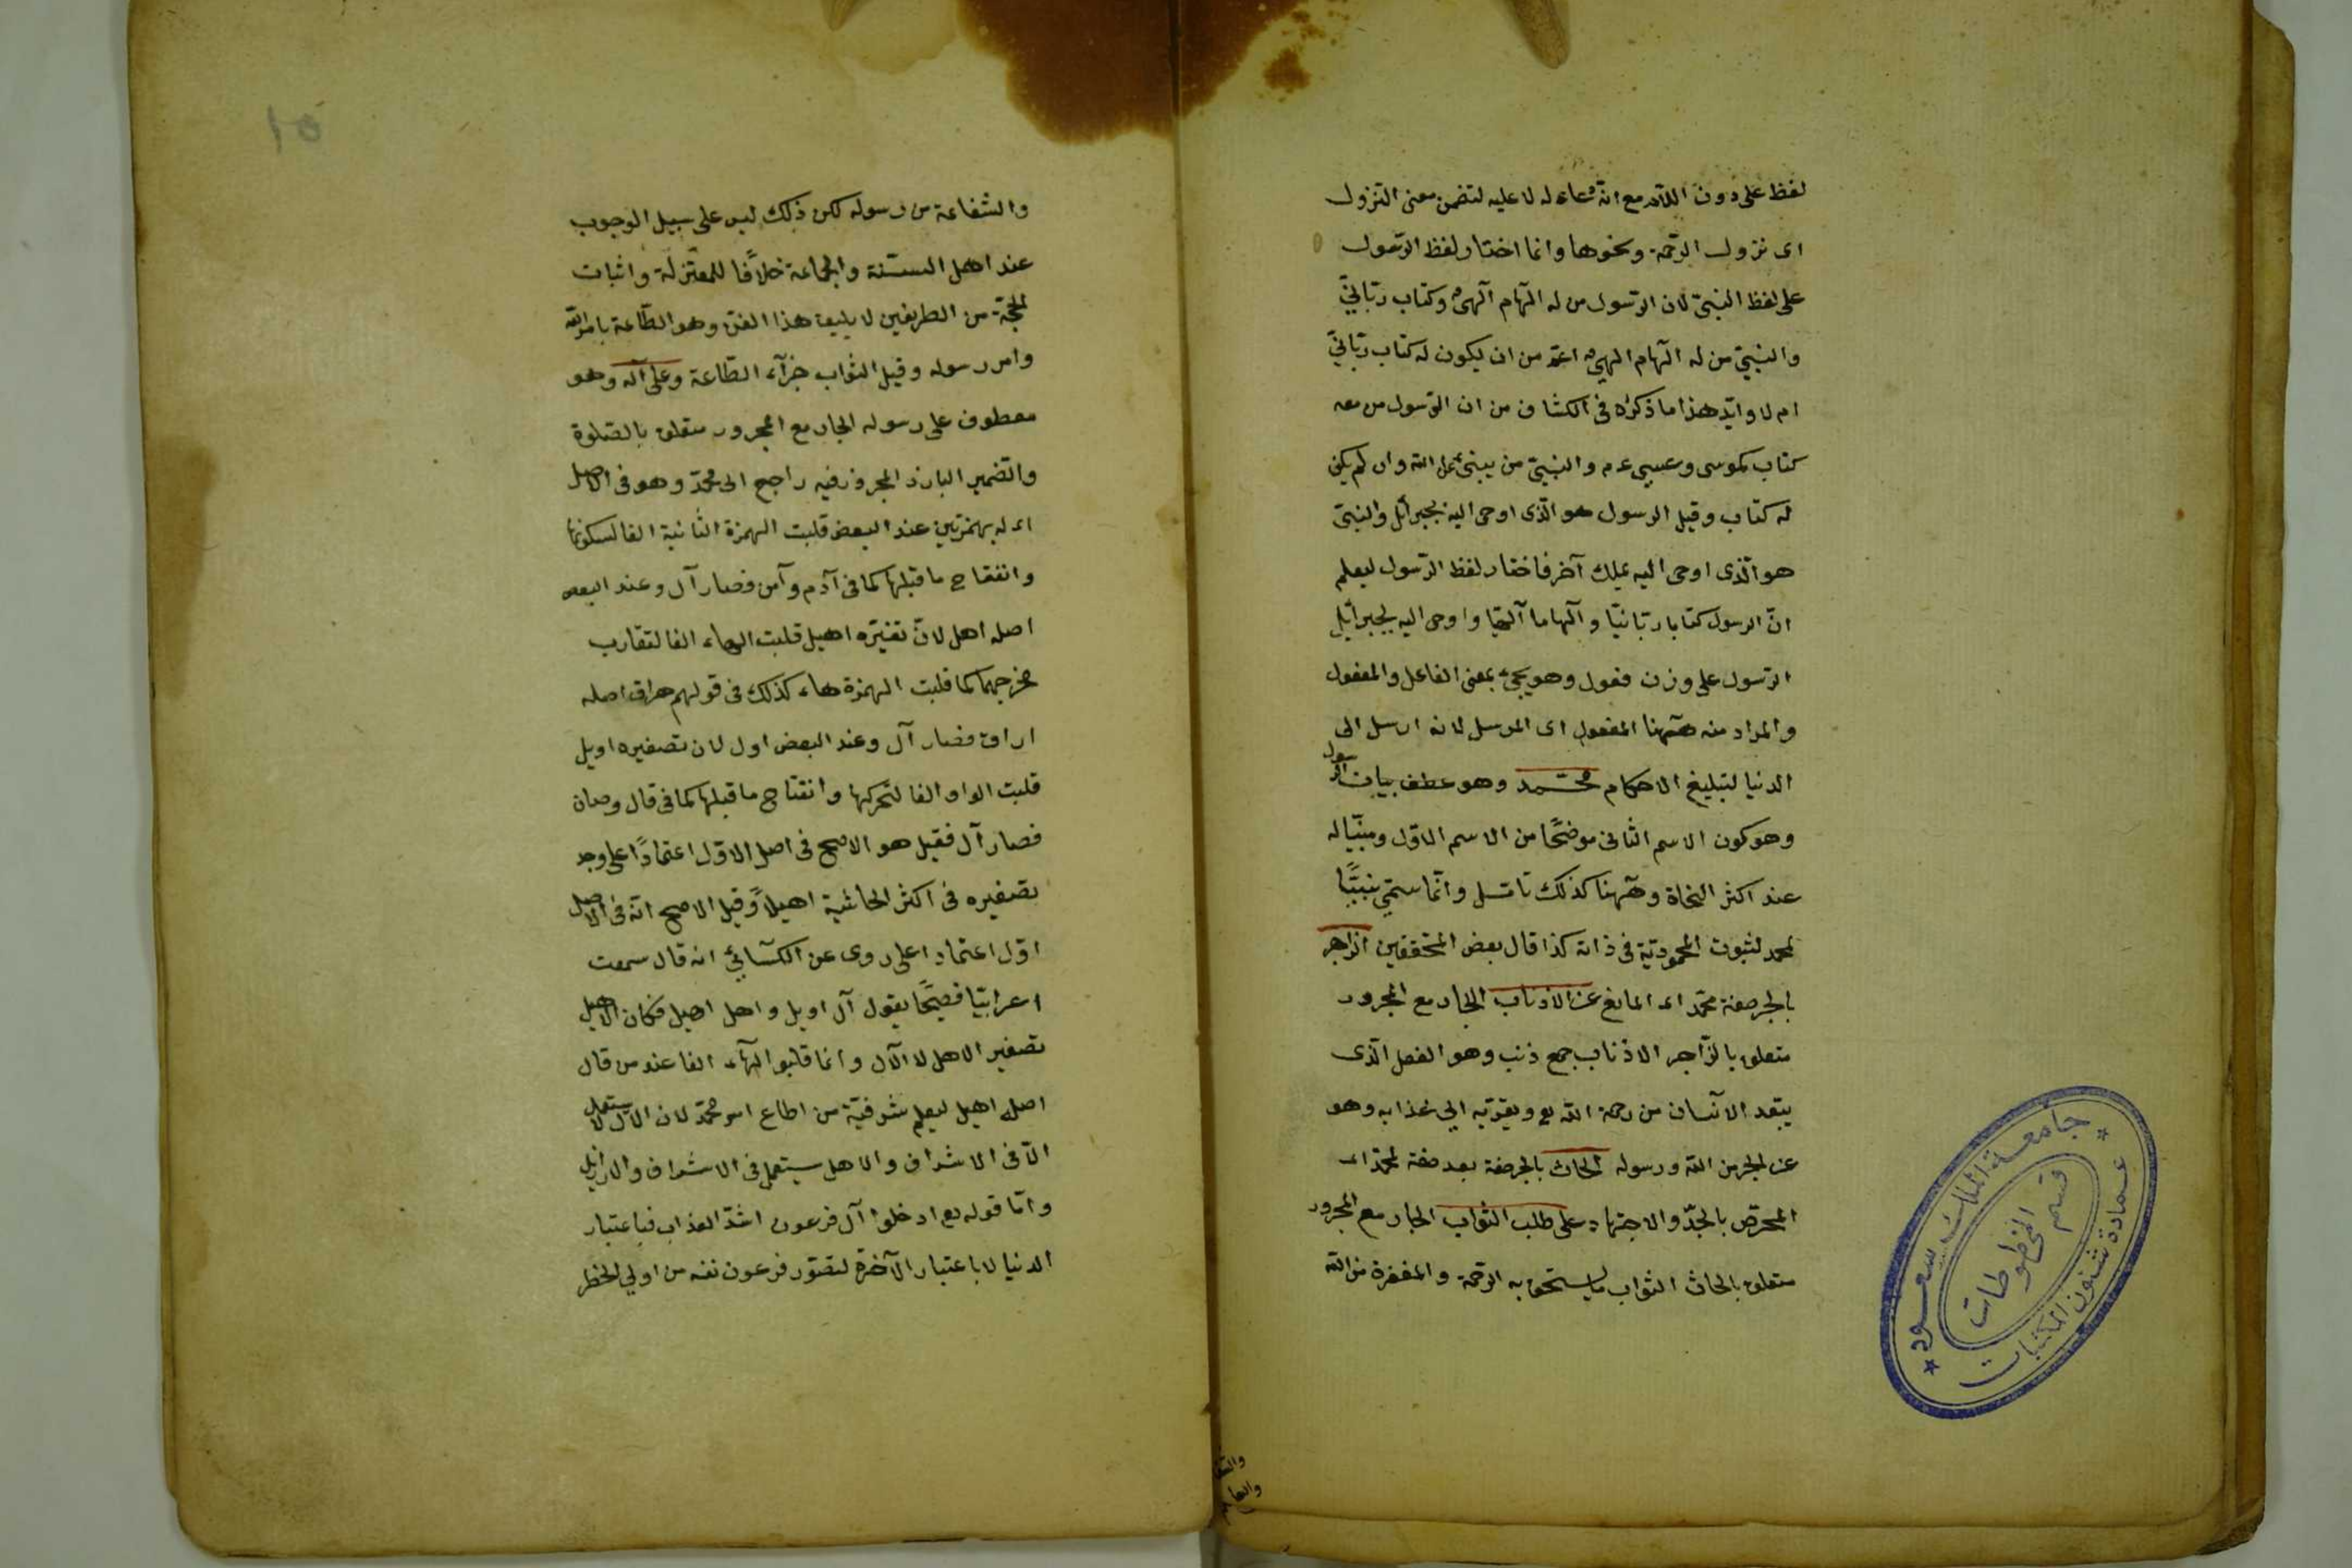 لفظ على دون اللام مع انه دعاء له لا عليه لتضمن معنى النزول
اى نزول الرحمة ونحوها وانما اختار لفظ الرسول
على لفظ النبىّ لان الرسول من له الهام الهىّ وكتاب ربّانىّ
والنبىّ من له الهام الهىّ اعمّ من ان يكون له كتاب ربّانىّ
ام لا وايّد هذا ما ذكره فى الكشاف من ان الرسول من معه
كتاب كموسى وعيسى عم والنبىّ من ينبئ عن الله وان لم يكن
له كتاب وقيل الرسول هو الّذى اوحى اليه بجبرائل والنبىّ
هو الّذى اوحى اليه بملك آخر فاختار لفظ الرّسول ليعلم
انّ الرسول كتابا ربّانيّا وآلهاما آلهيّا واوحى اليه بجبرائيل
الرّسول على وزن فعول وهو يجئ بمعنى الفاعل والمفعول
والمراد منه ههنا المفعول اى المرسل لانه ارسل الى
الدنيا لتبليغ الاحكام محمّد وهو عطف بيان الرسول
وهو كون الاسم الثانى موضحًا من الاسم الاوّل ومبيّنا له
عند اكثر النحاة وههنا كذلك تأمّل وانّما سمّى نبيّنا
لمحمد لثبوت المحموديّة فى ذاته كذا قال بعض المحققين الزاجر
بالجر صفة محمّد اى المانع عن الاذناب الجار مع المجرور
متعلق بالزّاجر الاذناب جمع ذنب وهو الفعل الّذى
يبعد الانسان من رحمة الله تع ويقرّبه الى عذابه وهو
عن المجرمين الله ورسوله الحاث بالجر صفة بعد صفة لمحمّد اى
المحرّض بالجدّ والاجتهاد على طلب الثواب الجار مع المجرور
متعلق بالحاث الثواب ما يستحق به الرحمة والمغفرة من الله
والشفا
والشفاعة من رسوله لكن ذلك ليس على سبيل الوجوب
عند اهل السنة والجماعة خلافًا للمعتزلة واثبات
الحجّة من الطريفين لا يليق هذا الفن وهو الطّاعة بامر الله
وامر رسوله وقيل الثواب جزآء الطّاعة وعلى آله وهو
معطوف على رسوله الجار مع المجرور متعلق بالصّلوة
والضمير البارز المجرور فيه راجع الى محمّد وهو فى الاصل
اءل بهمزتين عند البعض قلبت الهمزة الثانية الفا لسكونها
وانفتاح ما قبلها كما فى آدم وآمن فصار آل وعند البعض
اصله اهل لانّ تصغيره اهيل قلبت الهاء الفا لتقارب
مخرجهما كما قلبت الهمزة هاء كذلك فى قولهم هراق اصله
اراق فصار آل وعند البعض اول لان تصغيره اويل
قلبت الواو الفا لتحركها وانفتاح ما قبلها كما فى قال وصان
فصار آل فقيل هو الاصح فى اصل الاوّل اعتمادًا على وجه
تصغيره فى اكثر الحاشية اهيلاً وقيل الاصح انّه فى الاصل
اوّل اعتمادا على روى عن الكسائىّ انه قال سمعت
اعرابيّا فصيحًا يقول آل اويل واهل اهيل فكان الاهيل
تصغير الاهل لا الآل وانما قلبوا الهآء الفا عند من قال
اصله اهيل ليعلم شرفيّة من اطاع امر محمّد لان الآل لا يستعمل
الّا فى الاشراف والاهل يستعمل فى الاشراف والارازيل
وامّا قوله تع ادخلوا آل فرعون اشدّ العذاب فباعتبار
الدنيا لا باعتبار الآخرة لتصوّر فرعون نفسه من اولى الخطر
١٥
جامعة الملك سعود
عمادة شئون المكتبات
قسم المخطوطات